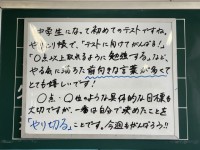 中学生になって初めてのテストですね。
やりとり帳で、「テストに向けてがんばる!」
「〇点以上取れるように勉強する」など、
やる気に満ちた前向きな言葉が多くて
とても嬉しいです!
〇点・〇位のような具体的な目標も
大切ですが、一番は自分で決めたことを
「やり切る」ことです。今週もがんばろう!!